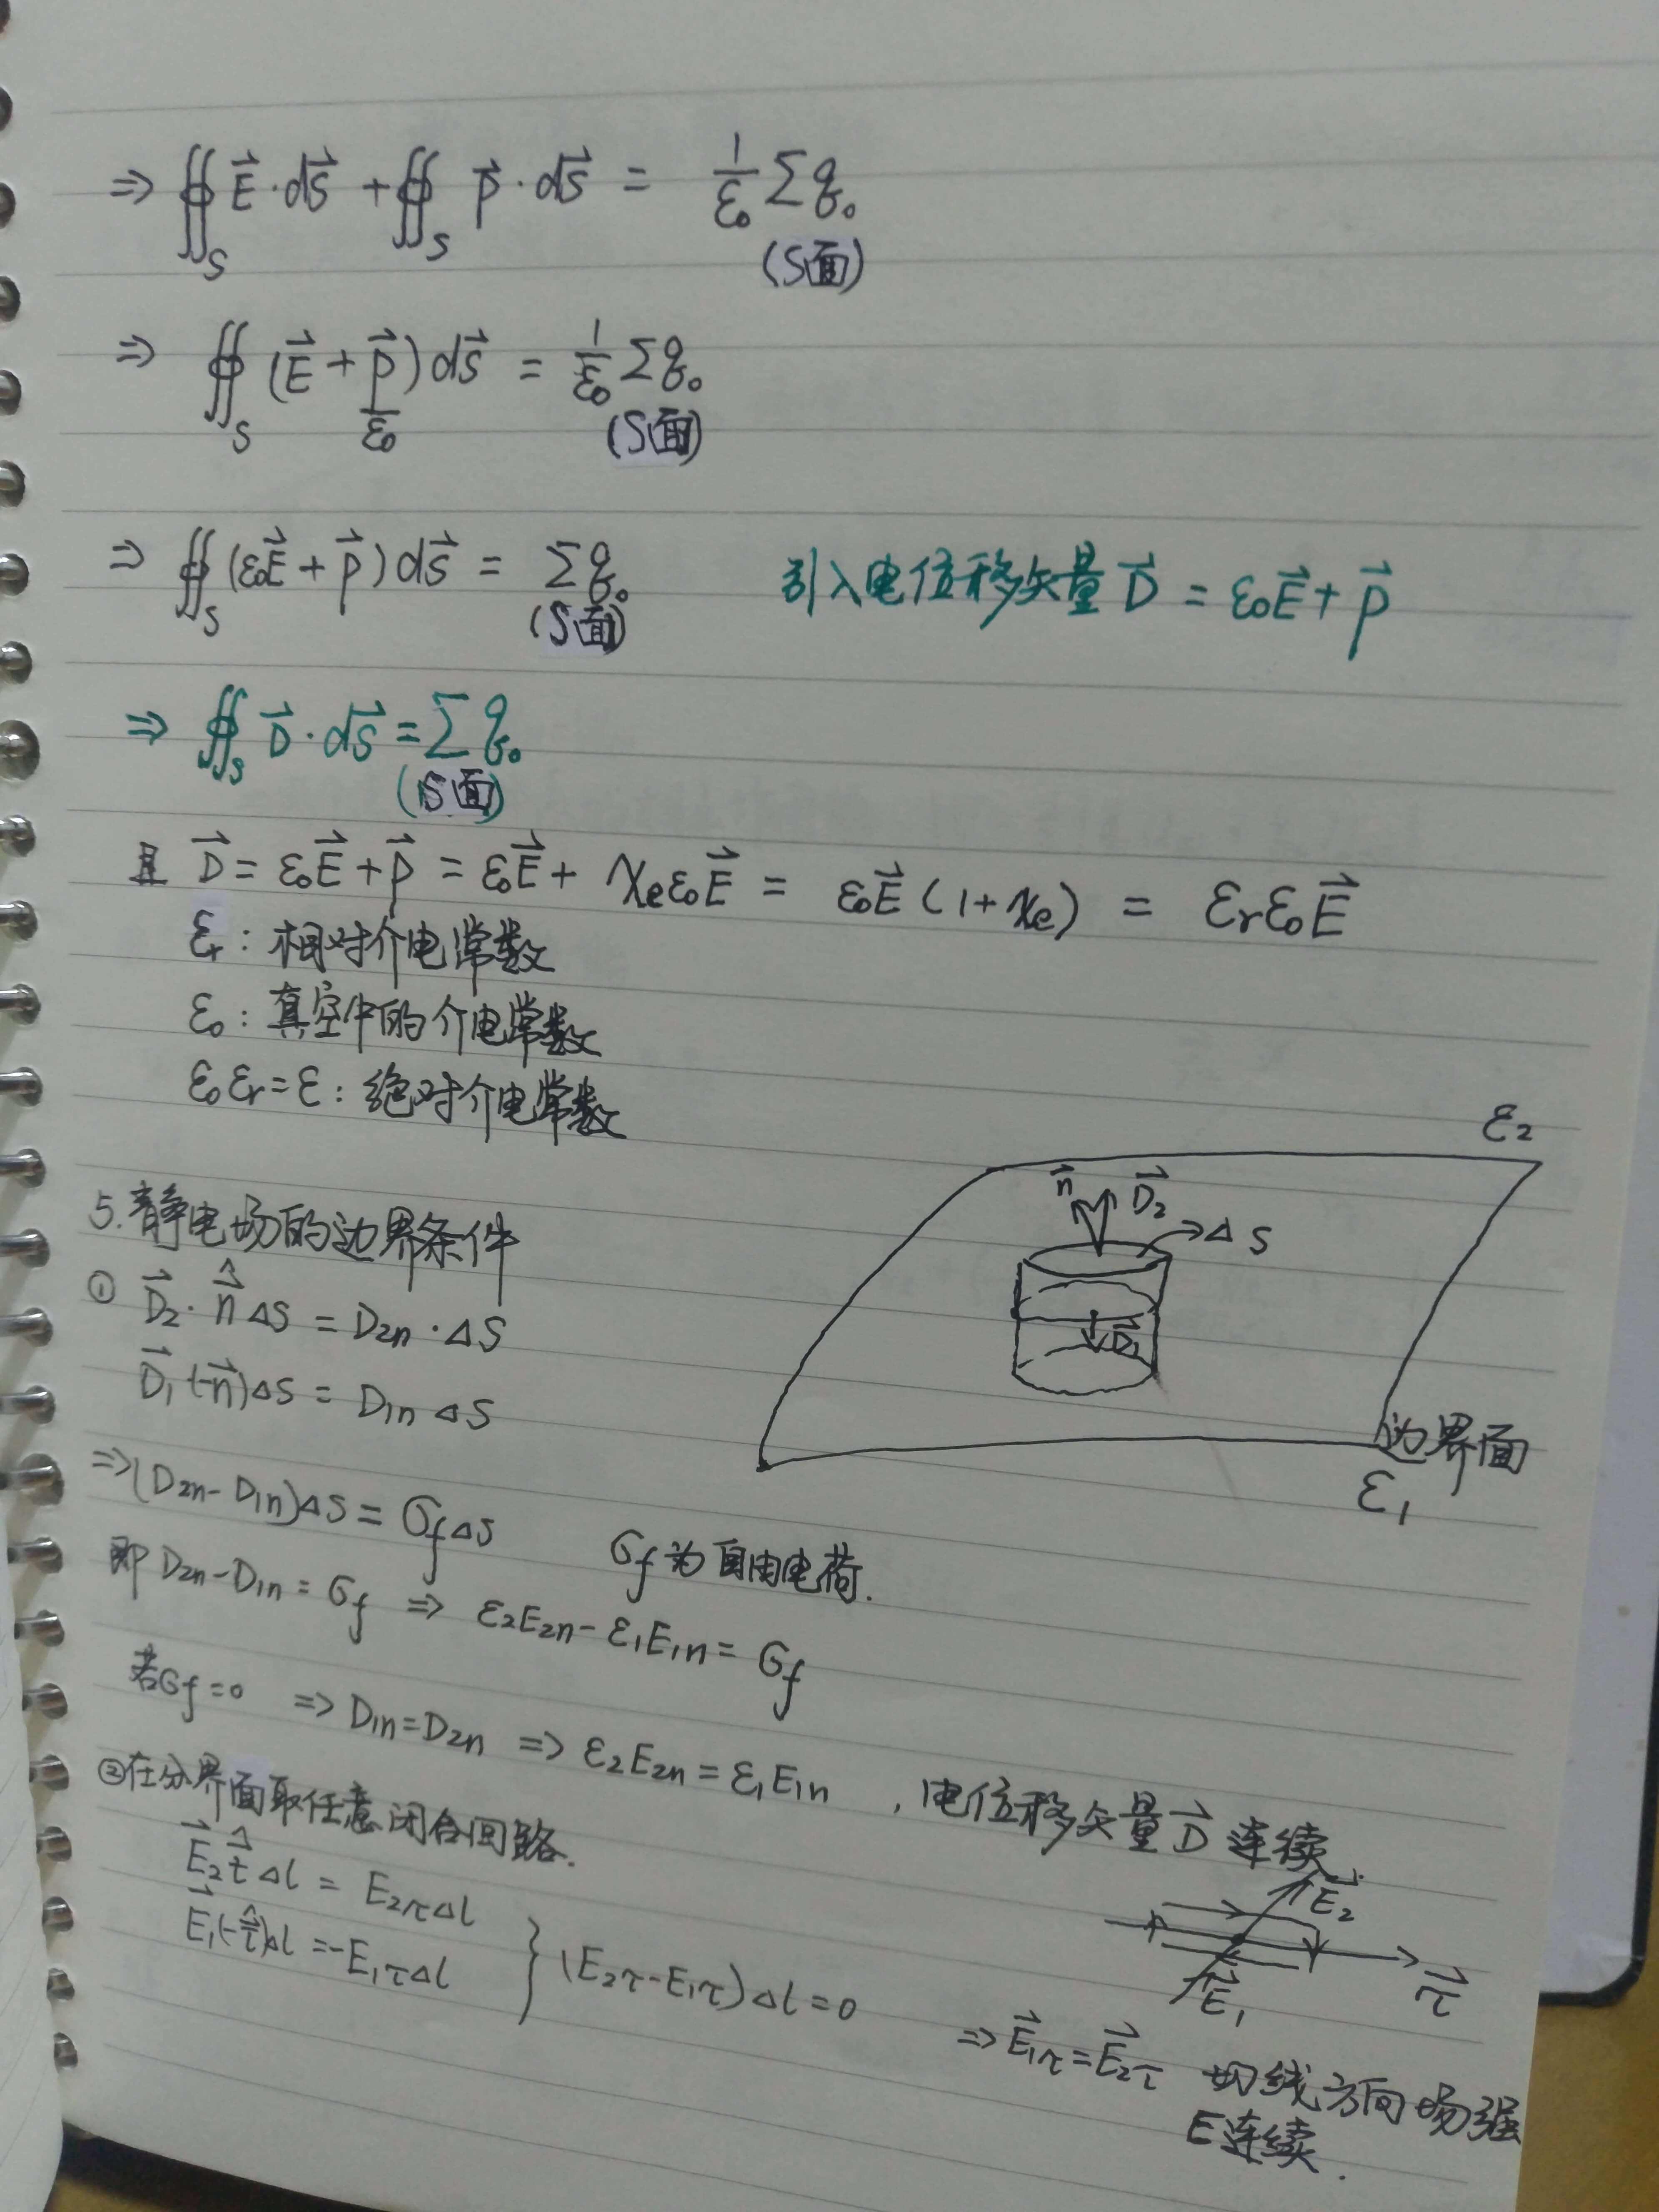 ⇒ ∯_S E⃗·dS⃗ + ∯_S P⃗·dS⃗ = 1/ε₀ Σq₀
(S面)
⇒ ∯_S (E⃗ + P⃗/ε₀) dS⃗ = 1/ε₀ Σq₀
(S面)
⇒ ∯_S (ε₀E⃗ + P⃗) dS⃗ = Σq₀ 引入电位移矢量 D⃗ = ε₀E⃗ + P⃗
(S面)
⇒ ∯_S D⃗·dS⃗ = Σq₀
(S面)
且 D⃗ = ε₀E⃗ + P⃗ = ε₀E⃗ + χₑε₀E⃗ = ε₀E⃗(1+χₑ) = εᵣε₀E⃗
εᵣ: 相对介电常数
ε₀: 真空中的介电常数
ε₀εᵣ=ε: 绝对介电常数
ε₂
n⃗ D⃗₂
→ΔS
D⃗₁
边界面
ε₁
5.静电场的边界条件
① D⃗₂·n⃗̂ΔS = D₂ₙ·ΔS
D⃗₁(-n⃗)ΔS = D₁ₙΔS
⇒(D₂ₙ-D₁ₙ)ΔS = σ_fΔS σ_f为自由电荷.
即 D₂ₙ-D₁ₙ = σ_f ⇒ ε₂E₂ₙ-ε₁E₁ₙ = σ_f
若σ_f=0 ⇒ D₁ₙ=D₂ₙ ⇒ ε₂E₂ₙ=ε₁E₁ₙ ,电位移矢量D⃗连续.
②在分界面取任意闭合回路.
E⃗₂τ⃗̂Δl = E₂τΔl
E⃗₁(-τ⃗̂)Δl = -E₁τΔl } (E₂τ-E₁τ)Δl=0
E⃗₂
E⃗₁
τ⃗
⇒E⃗₁τ=E⃗₂τ 切线方向场强
E连续.